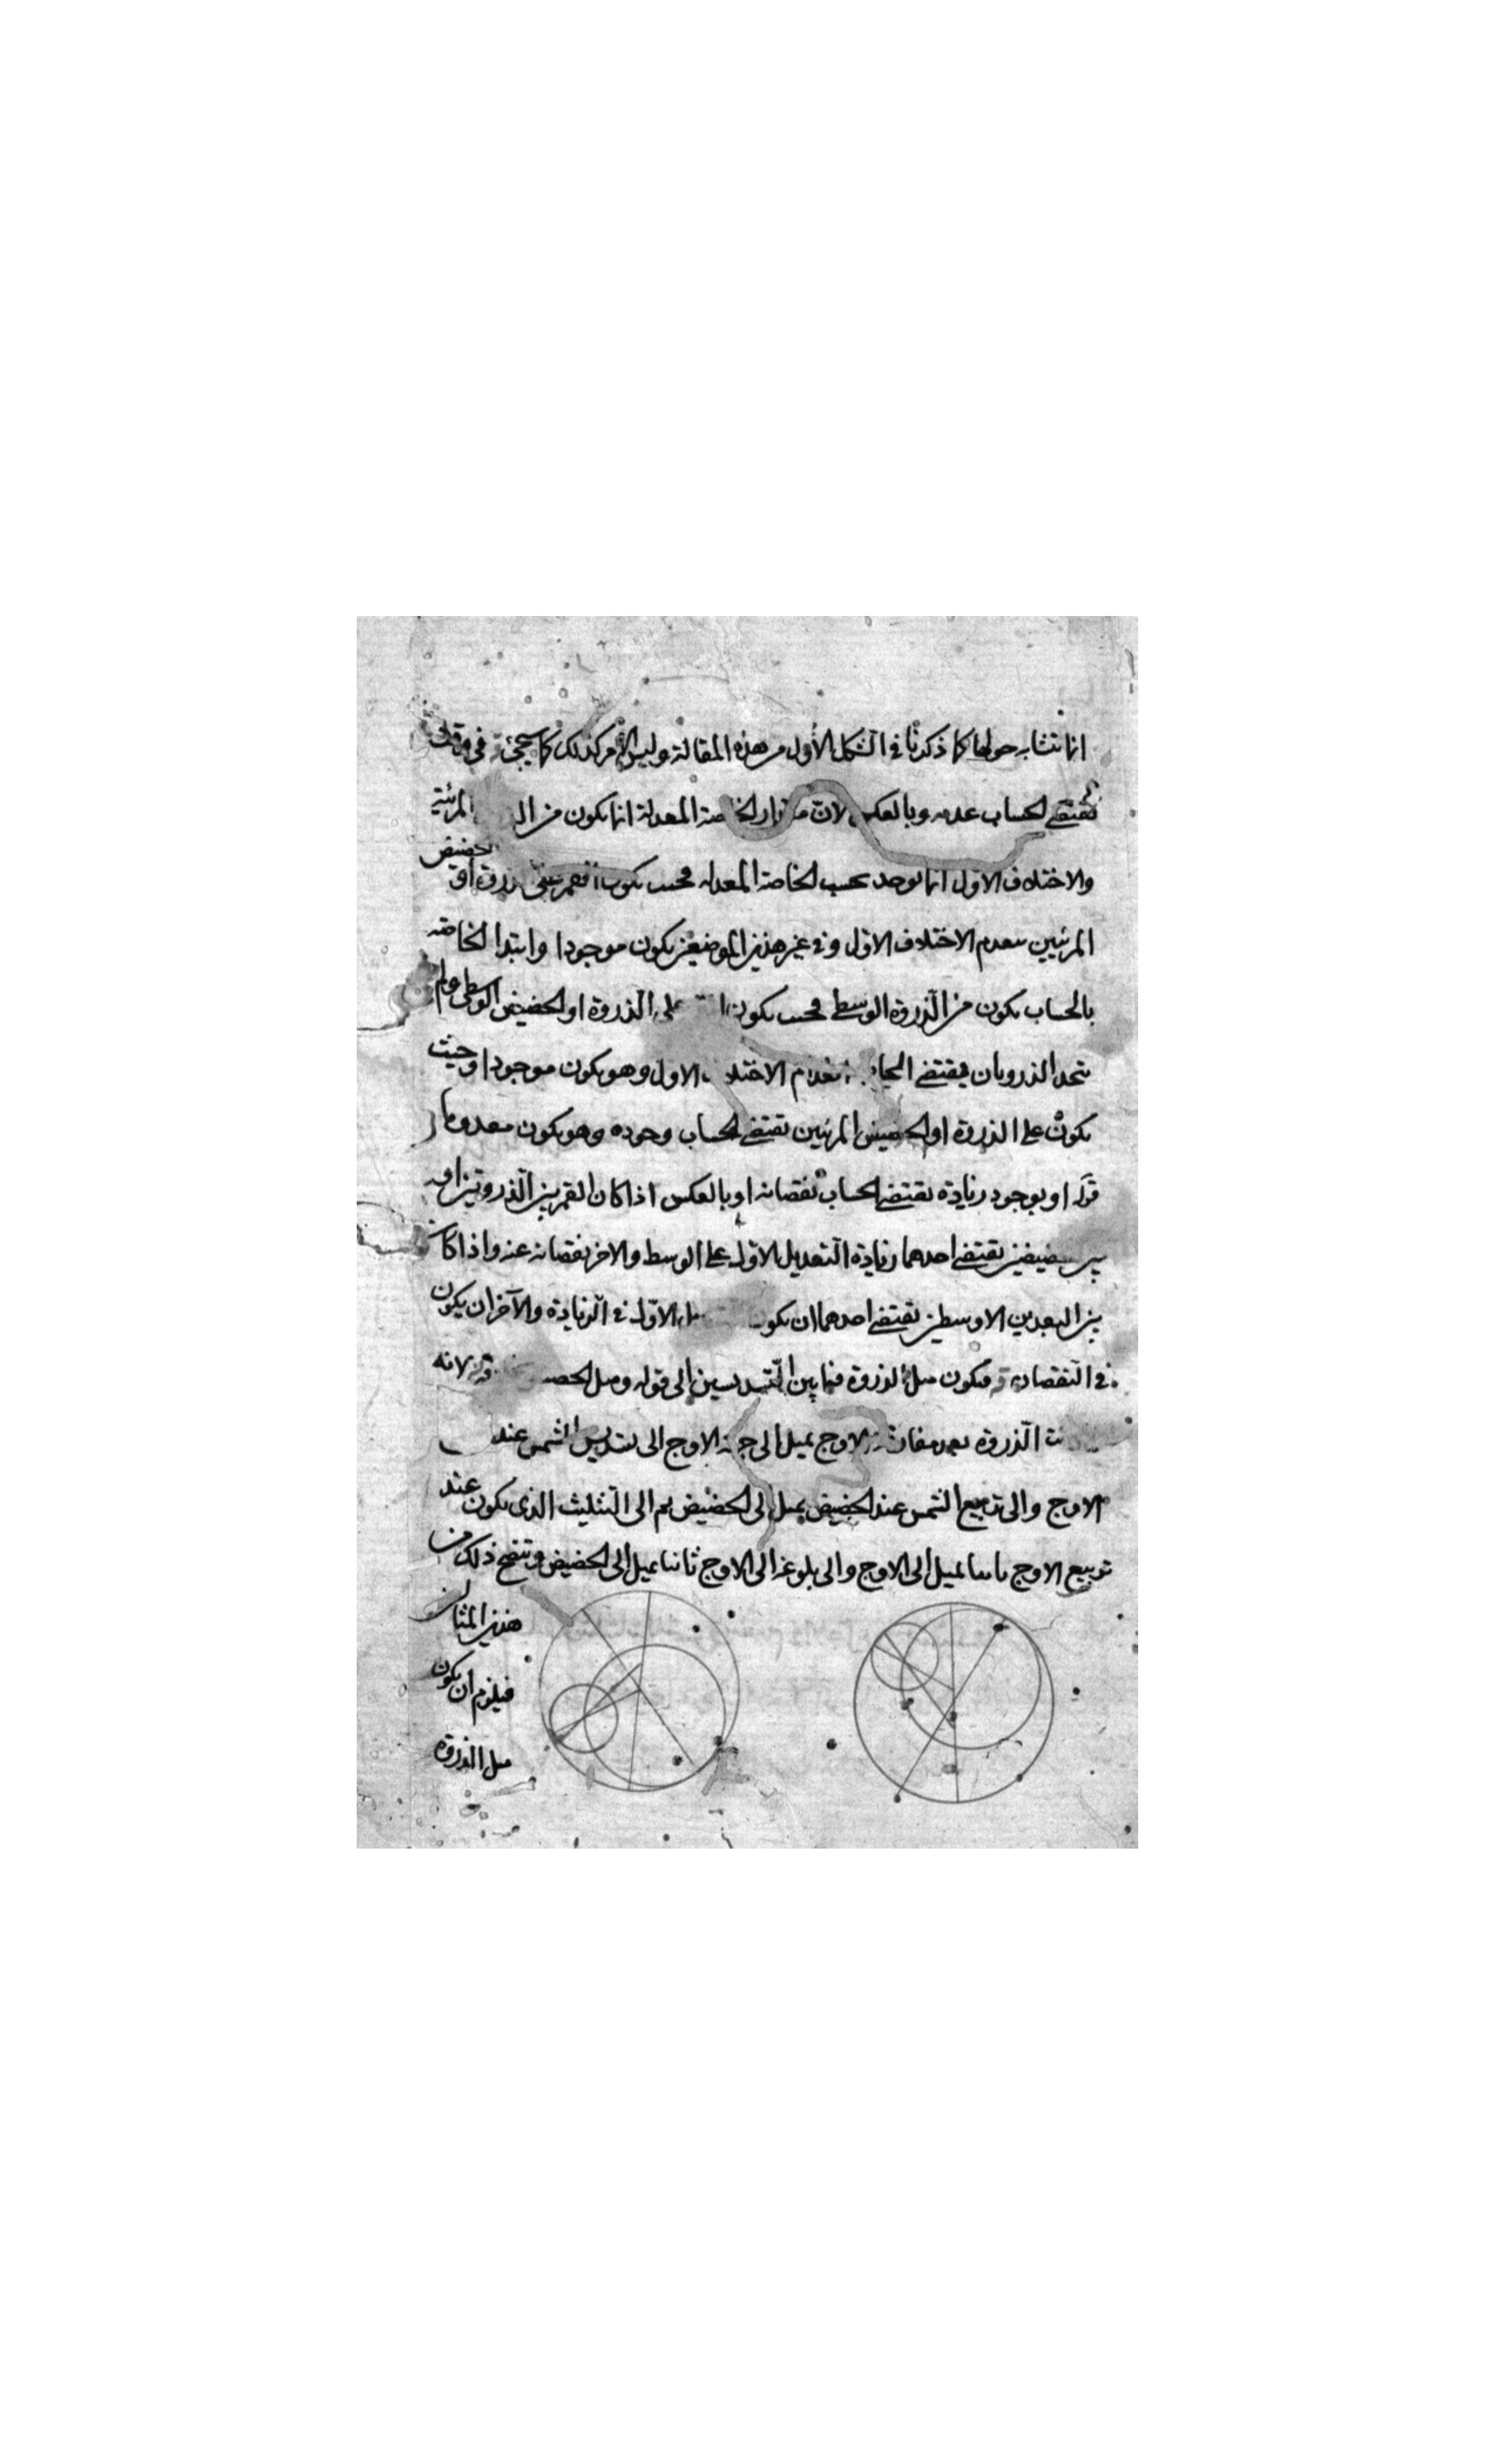 انما تتشابه حولها كما ذكرنا في الشكل الأول من هذه المقالة وليس الأمر كذلك كما سيجئ في
يقتضى الحساب عدمه وبالعكس لان مقدار الخاصة المعدلة انما يكون من المرئية
والاختلاف الاول انما يوجد بحسب الخاصة المعدله فحيث يكون القمر على الذروة او الحضيض
المرئيين ينعدم الاختلاف الاول وفي غير هذين الموضعين يكون موجودا وابتدا الخاصة
بالحساب يكون من الذروة الوسطى فحيث يكون على الذروة او الحضيض الوسطى ولم
يتحد الذروتان يقتضى الحساب انعدام الاختلاف الاول وهو يكون موجودا وحيث
يكون على الذروة او الحضيض المرئيين يقتضى الحساب وجوده وهو يكون معدوما
قوله او بوجود زيادة يقتضى الحساب نقصانه او بالعكس اذا كان القمر بين الذروتين او
بين الحضيضين يقتضى احدهما زيادة التعديل الاول على الوسط والاخر نقصانه عنه واذا كان
بين البعدين الاوسطين يقتضى احدهما ان يكون الاول في الزيادة والآخر ان يكون
في النقصان فيكون ميل الذروة فيما بين التسديسين الى قوله وميل الحضيض لانه
الذروة بعد مفارقة الاوج يميل الى جهة الاوج الى تسديس الشمس عند
الاوج والى تربيع الشمس عند الحضيض يميل الى الحضيض ثم الى التثليث الذى يكون عند
تربيع الاوج يميل الى الاوج والى بلوغه الى الاوج ثانيا يميل الى الحضيض ويتضح ذلك من
هذين المثالين
فيلزم ان يكون
ميل الذروة